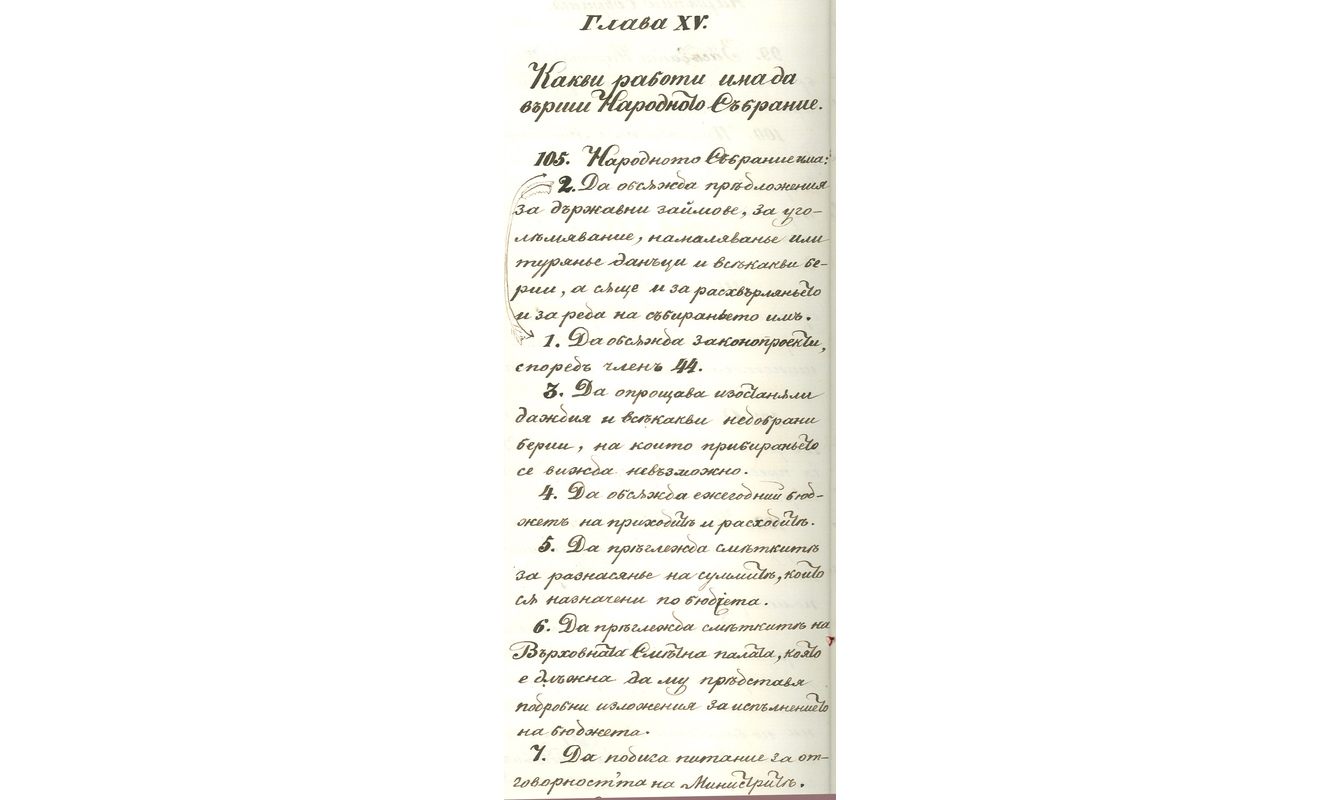 Глава XV.
Какви работи има да
върши Народното Събрание.
105. Народното Събрание има:
2. Да обсѫжда прѣдложения
за държавни займове, за уго-
лѣмявание, намаляванье или
турянье данъци и всѣкакви бе-
рии, а сѫще и за расхвърляньето
и за реда на събираньето имъ.
1. Да обсѫжда законопроекти,
споредъ членъ 44.
3. Да опрощава изостанѫли
даждия и всѣкакви недобрани
берии, на които прибираньето
се вижда невъзможно.
4. Да обсѫжда ежегодний бюд-
жетъ на приходитѣ и расходитѣ.
5. Да прѣглежда смѣткитѣ
за разнасянье на суммитѣ, които
сѫ назначени по бюджета.
6. Да прѣглежда смѣткитѣ на
Върховната Смѣтна палата, която
е длъжна да му прѣдставя
подробни изложения за испълнението
на бюджета.
7. Да подига питание за от-
говорность'та на Министритѣ.